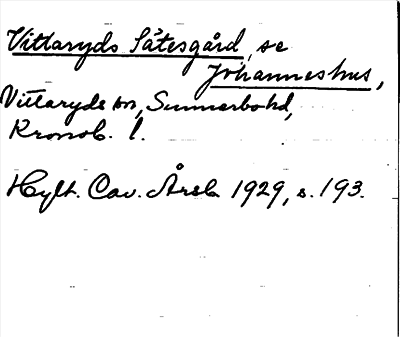 Vittaryds Sätesgård, se
Johanneshus,
Vittaryds sn, Sunnerbo hd,
Kronob. l.
Hylt. Cav. Årsb. 1929, s. 193.